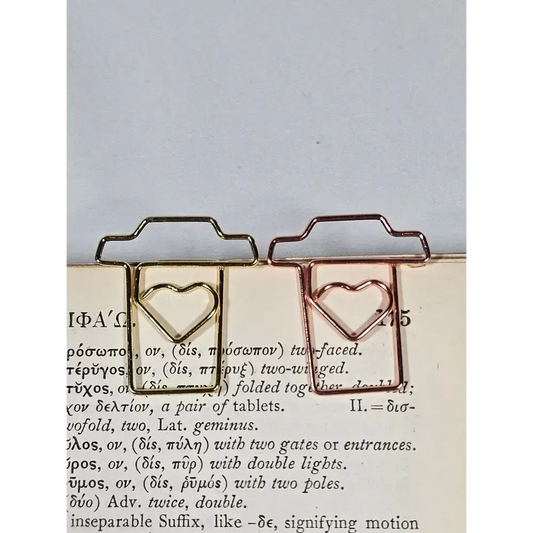 ΙΦΑʼΩ. 175
ρόσωπος, ον, (δίς, πρόσωπον) two-faced.
τέρυγος, ον, (δίς, πτέρυξ) two-winged.
τῦχος, ον, (δίς, πτυχή) folded together, doubled;
χον δελτίον, a pair of tablets. II. = δισ-
wofold, two, Lat. geminus.
υλος, ον, (δίς, πύλη) with two gates or entrances.
υρος, ον, (δίς, πῦρ) with double lights.
ῡμος, ον, (δίς, ῥῡμός) with two poles.
(δύο) Adv. twice, double.
inseparable Suffix, like -δε, signifying motion